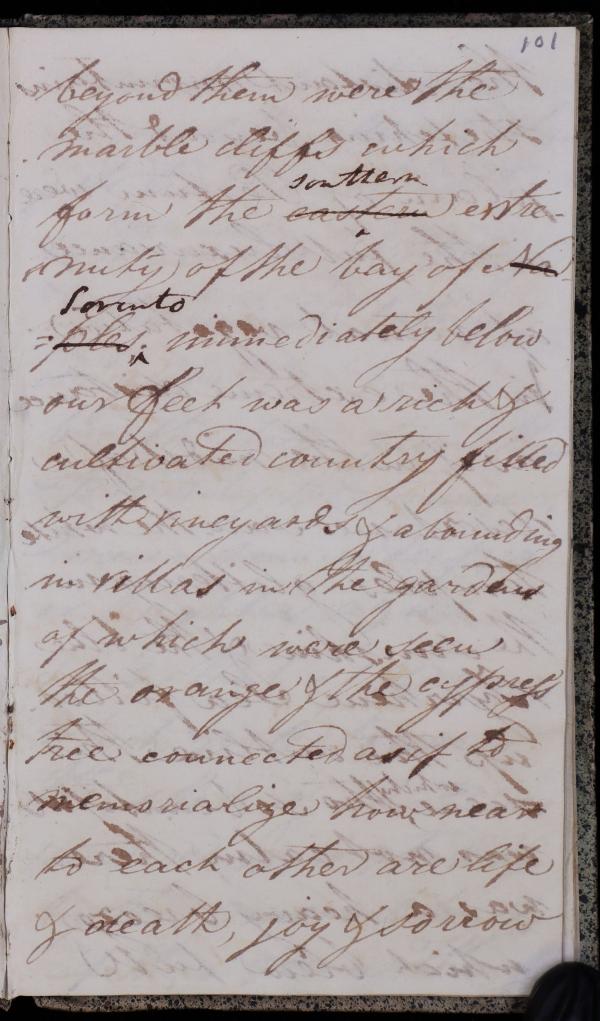 101
beyond them were the
marble cliffs which
southern
form the eastern extre-
mity of the bay of Na
Sorento
=ples, immediately below
our feet was a rich &
cultivated country filled
with vineyards & abounding
in villas in the gardens
of which were seen
the orange & the cypress
tree connected as if to
memorialize how near
to each other are life
& death, joy & sorrow